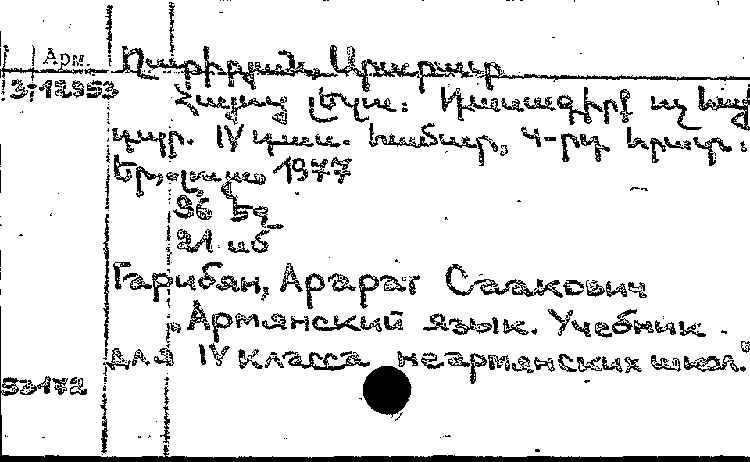 Арм. Ղարիբյան, Արարատ
3-12953 Հայոց լեզու: Դասագիրք ոչ հայ
դպր. IV դաս. համար, 4-րդ հրատ.:
Եր., Լույս 1977
96 էջ
21 սմ
Гарибян, Арарат Саакович
"Армянский язык. Учебник
для IV класса неармянских школ."
53172